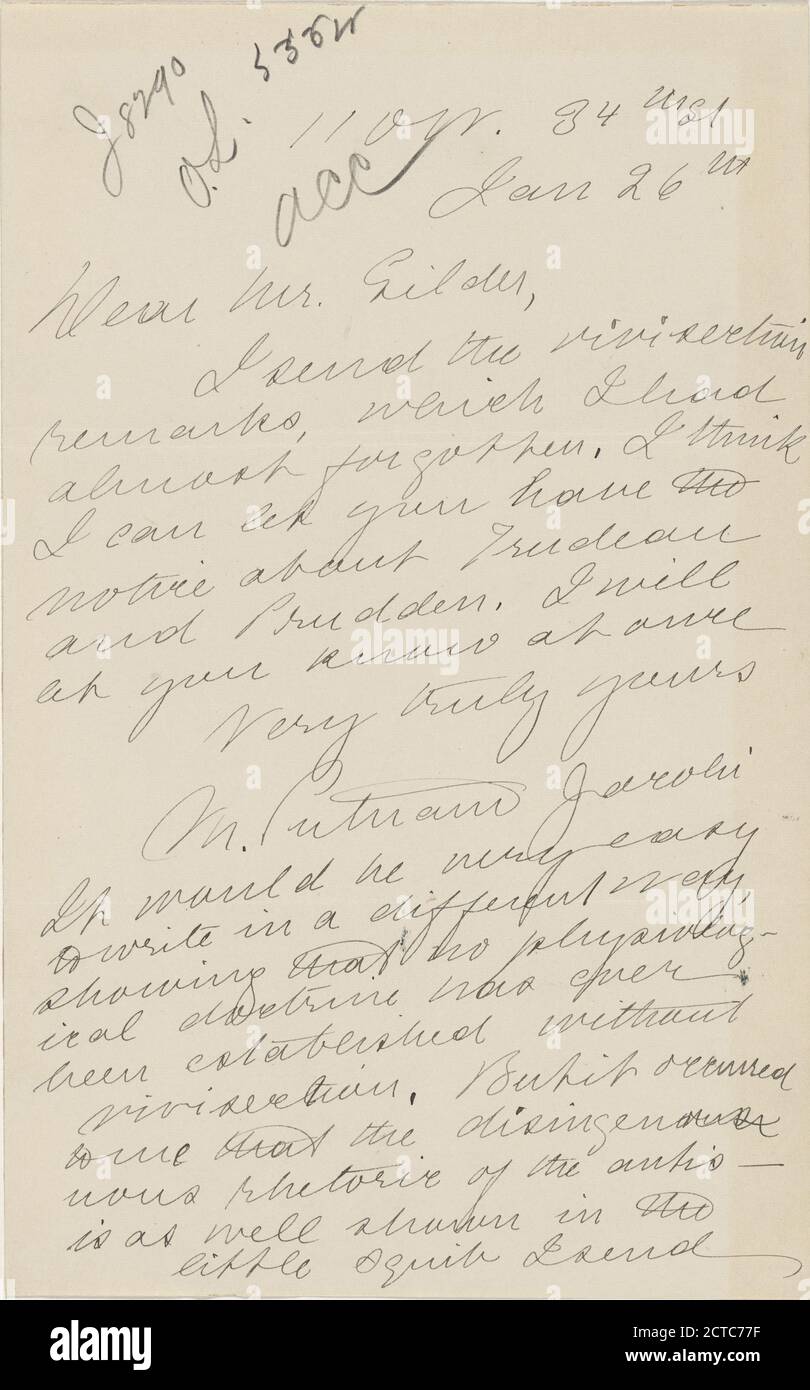 J8290
O.L. 
acc
110 W. 34th St
Jan 26th
Dear Mr. Gilder,
I send the vivisection
remarks, which I had
almost forgotten. I think
I can let you have the
notice about Trudeau
and Prudden. I will
let you know at once
Very truly yours
M. Putnam Jacobi
It would be very easy
to write in a different way,
showing that no physiolog-
ical doctrine has ever
been established without
vivisection. But it occurred
to me that the disingen
uous rhetoric of the antis—
is as well shown in the
little squib I send
alamy
Image ID: 2CTC77F
www.alamy.com